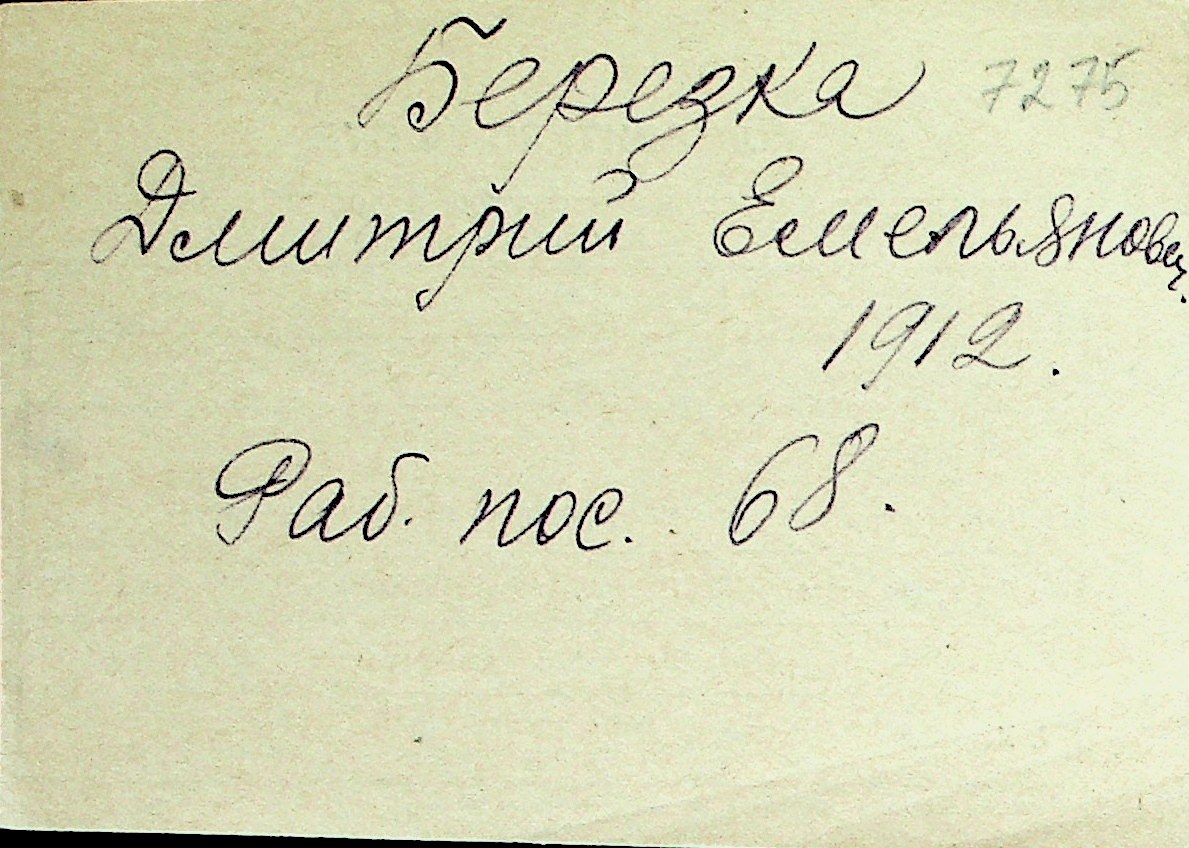 Березка 7275
Дмитрий Емельянович
1912.
Раб. пос. 68.